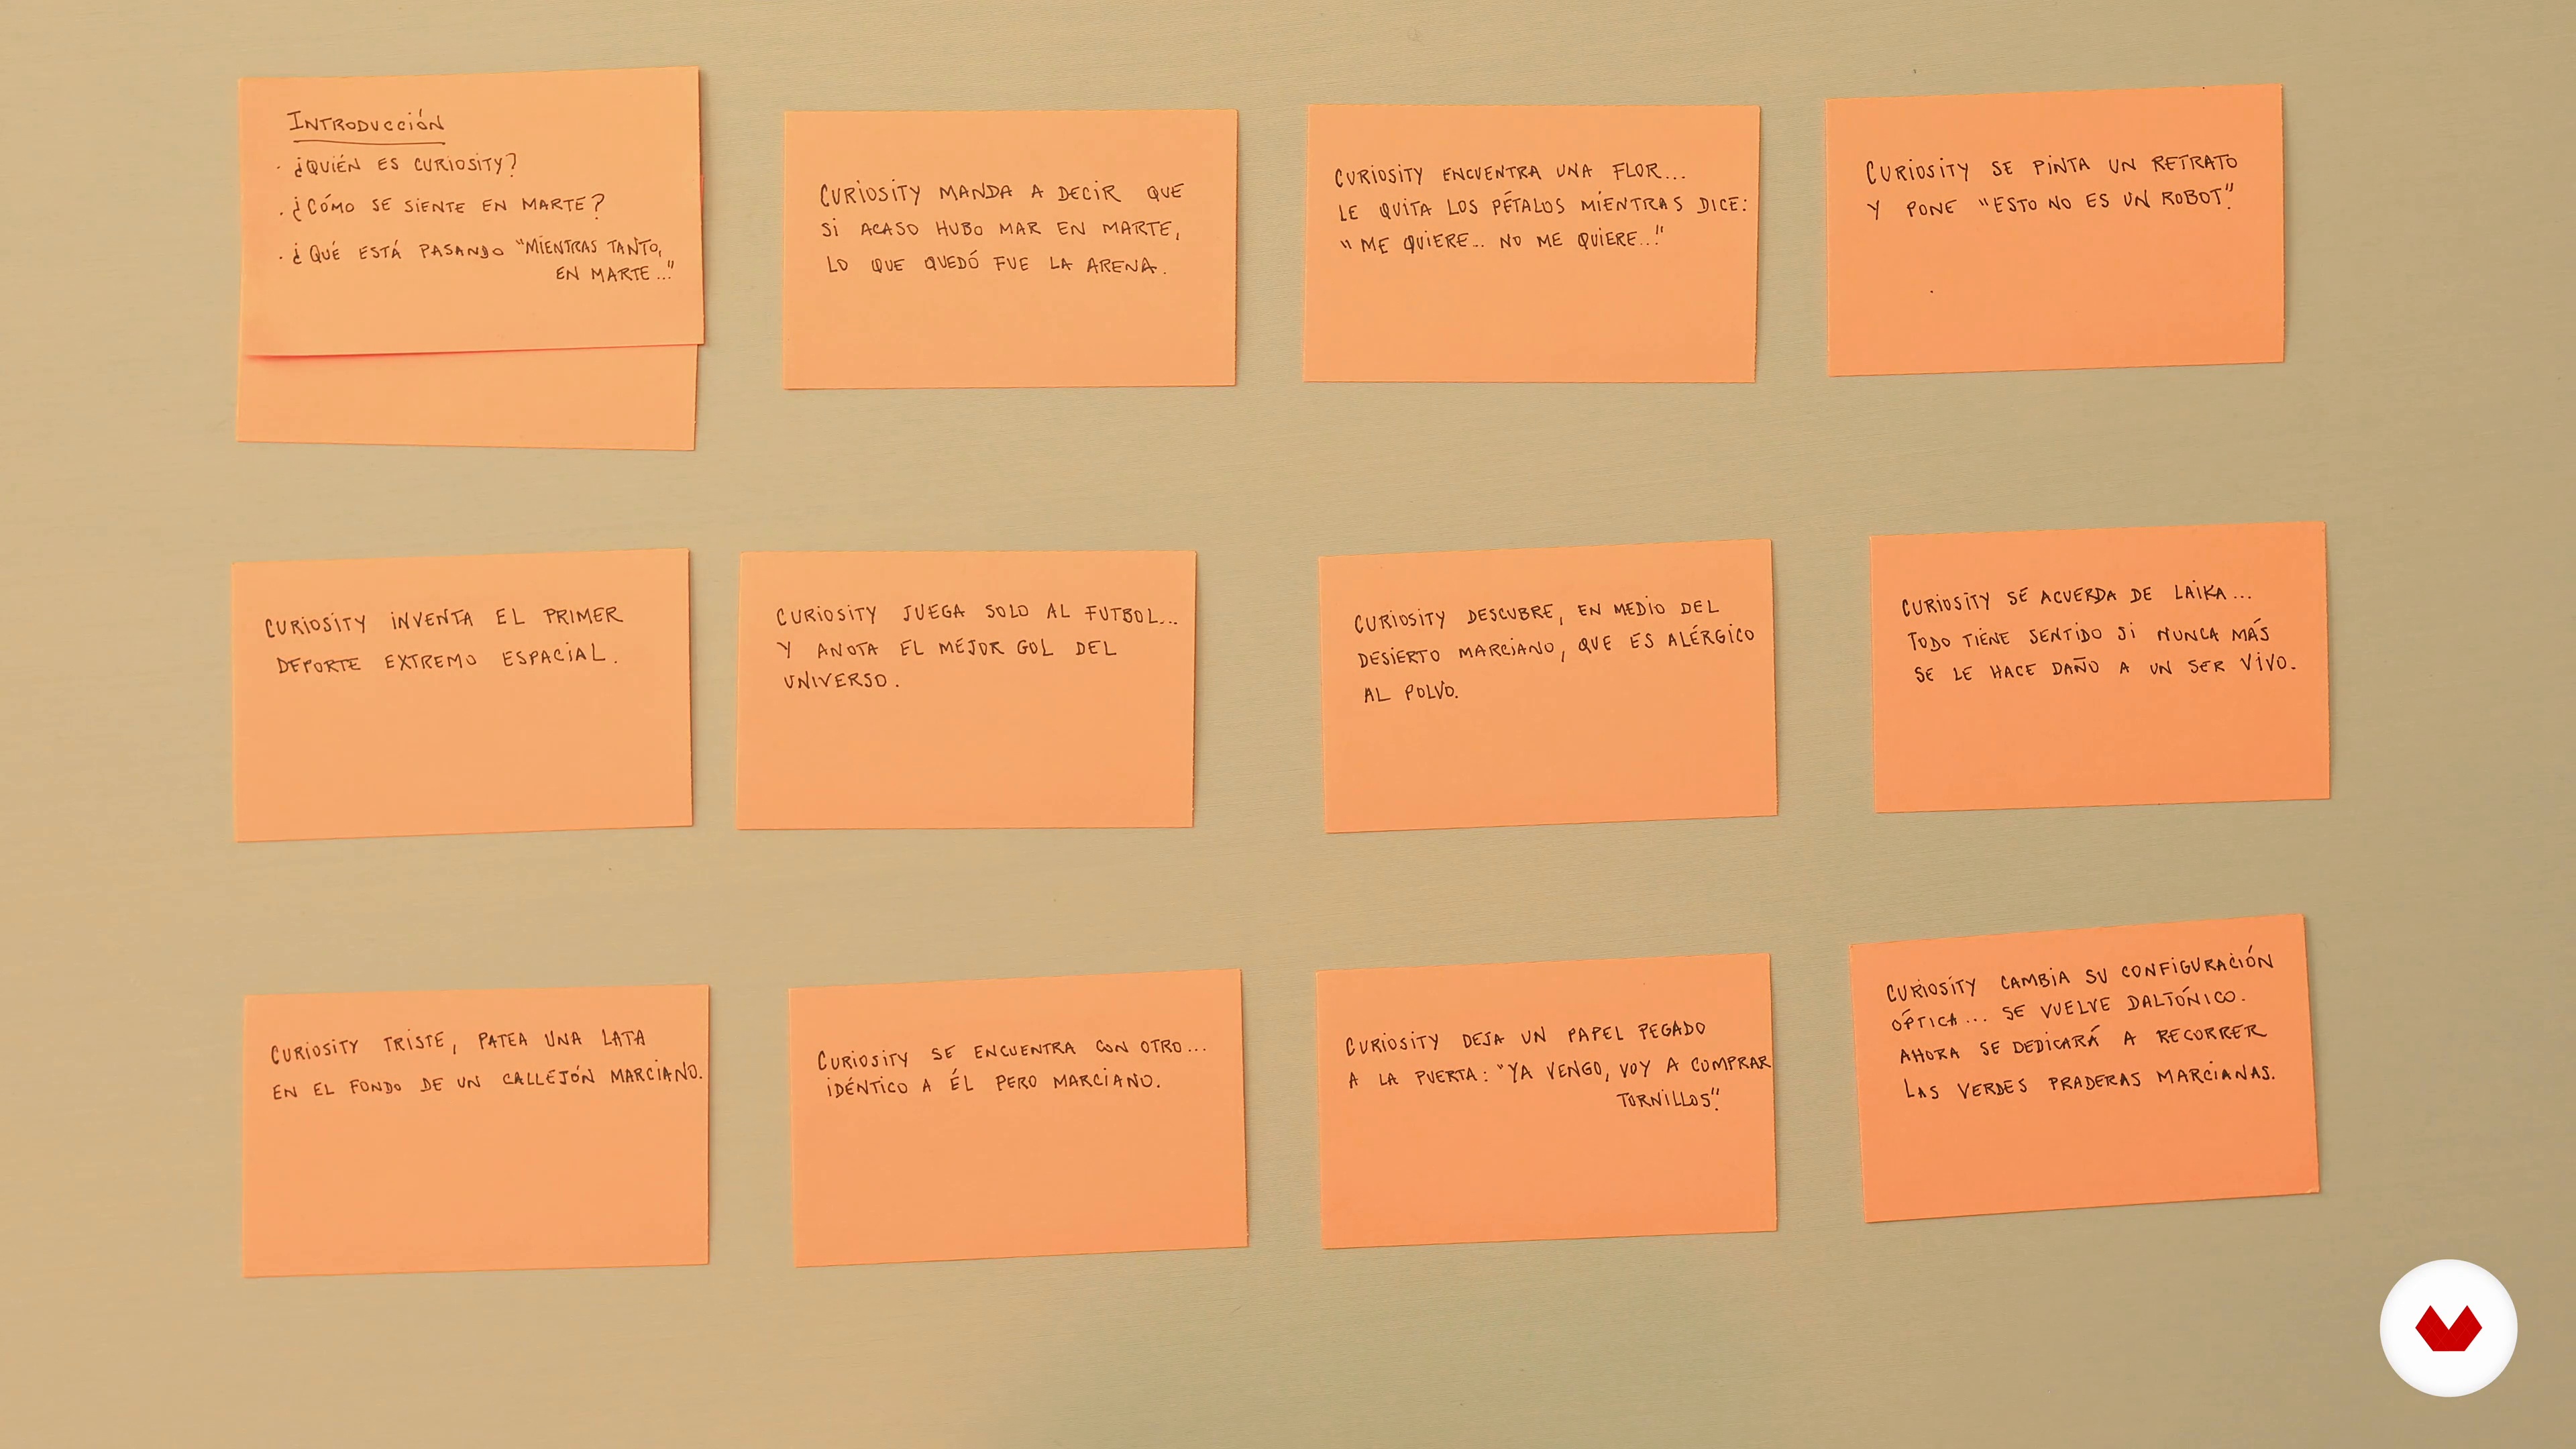 INTRODUCCIÓN
· ¿QUIÉN ES CURIOSITY?
· ¿CÓMO SE SIENTE EN MARTE?
· ¿QUÉ ESTÁ PASANDO "MIENTRAS TANTO,
EN MARTE..."
CURIOSITY MANDA A DECIR QUE
SI ACASO HUBO MAR EN MARTE,
LO QUE QUEDÓ FUE LA ARENA.
CURIOSITY ENCUENTRA UNA FLOR...
LE QUITA LOS PÉTALOS MIENTRAS DICE:
"ME QUIERE... NO ME QUIERE..."
CURIOSITY SE PINTA UN RETRATO
Y PONE "ESTO NO ES UN ROBOT".
CURIOSITY INVENTA EL PRIMER
DEPORTE EXTREMO ESPACIAL.
CURIOSITY JUEGA SOLO AL FUTBOL...
Y ANOTA EL MEJOR GOL DEL
UNIVERSO.
CURIOSITY DESCUBRE, EN MEDIO DEL
DESIERTO MARCIANO, QUE ES ALÉRGICO
AL POLVO.
CURIOSITY SE ACUERDA DE LAIKA...
TODO TIENE SENTIDO SI NUNCA MÁS
SE LE HACE DAÑO A UN SER VIVO.
CURIOSITY TRISTE, PATEA UNA LATA
EN EL FONDO DE UN CALLEJÓN MARCIANO.
CURIOSITY SE ENCUENTRA CON OTRO...
IDÉNTICO A ÉL PERO MARCIANO.
CURIOSITY DEJA UN PAPEL PEGADO
A LA PUERTA: "YA VENGO, VOY A COMPRAR
TORNILLOS".
CURIOSITY CAMBIA SU CONFIGURACIÓN
ÓPTICA... SE VUELVE DALTÓNICO.
AHORA SE DEDICARÁ A RECORRER
LAS VERDES PRADERAS MARCIANAS.